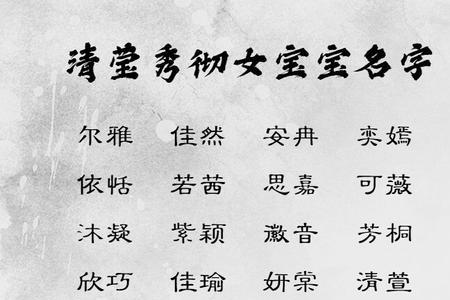 清莹秀彻女宝宝名字
尔雅 佳然 安冉 奕嫣
依恬 若茜 思嘉 可薇
沐凝 紫颖 徽音 芳桐
欣巧 佳瑜 妍棠 清萱